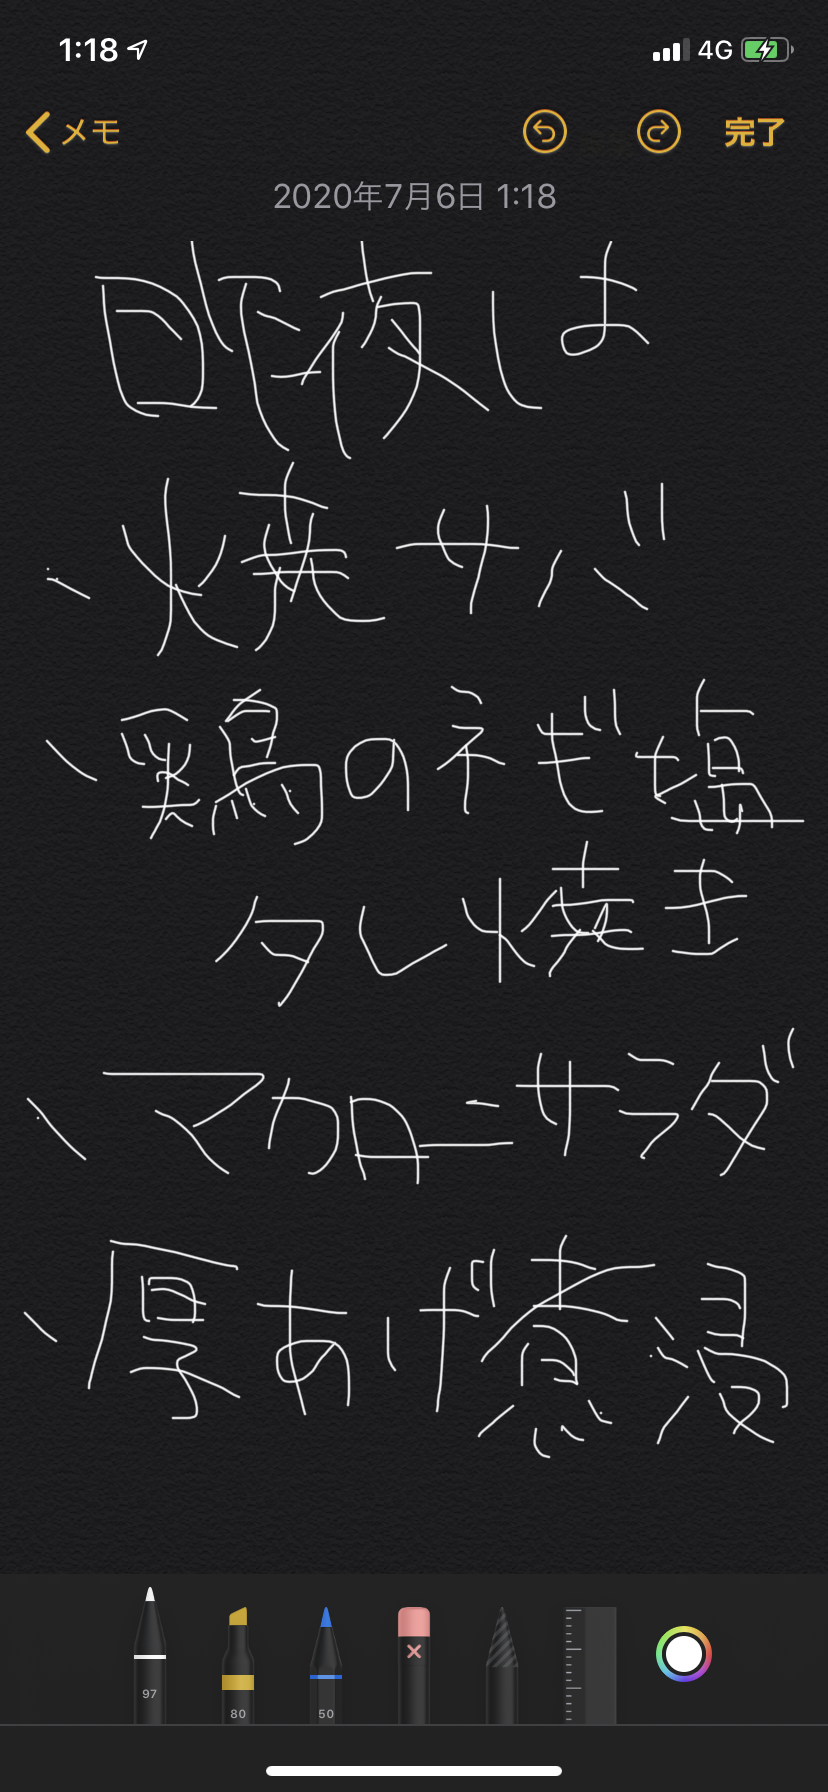 1:18 4G
メモ 完了
2020年7月6日 1:18
昨夜は
、焼サバ
、鶏のネギ塩
タレ焼き
、マカロニサラダ
、厚あげ煮浸
97 80 50